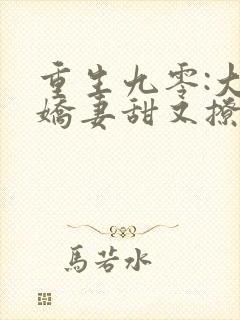 重生九零:大
嬌妻甜又撩
馬若水